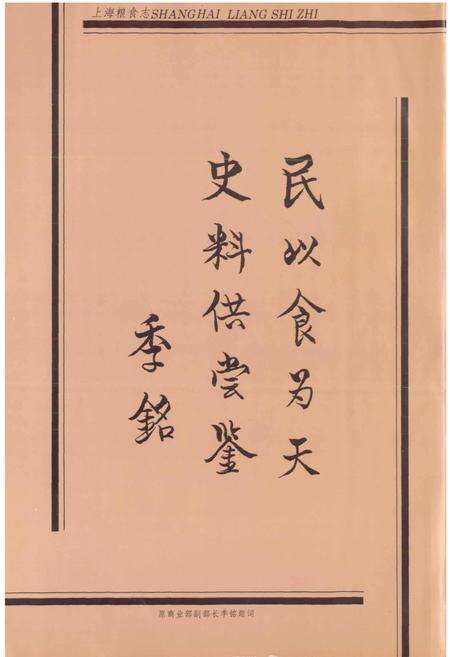 上海粮食志SHANGHAI LIANG SHI ZHI
民以食为天
史料供尝鉴
季銘
原商业部副部长季铭题词